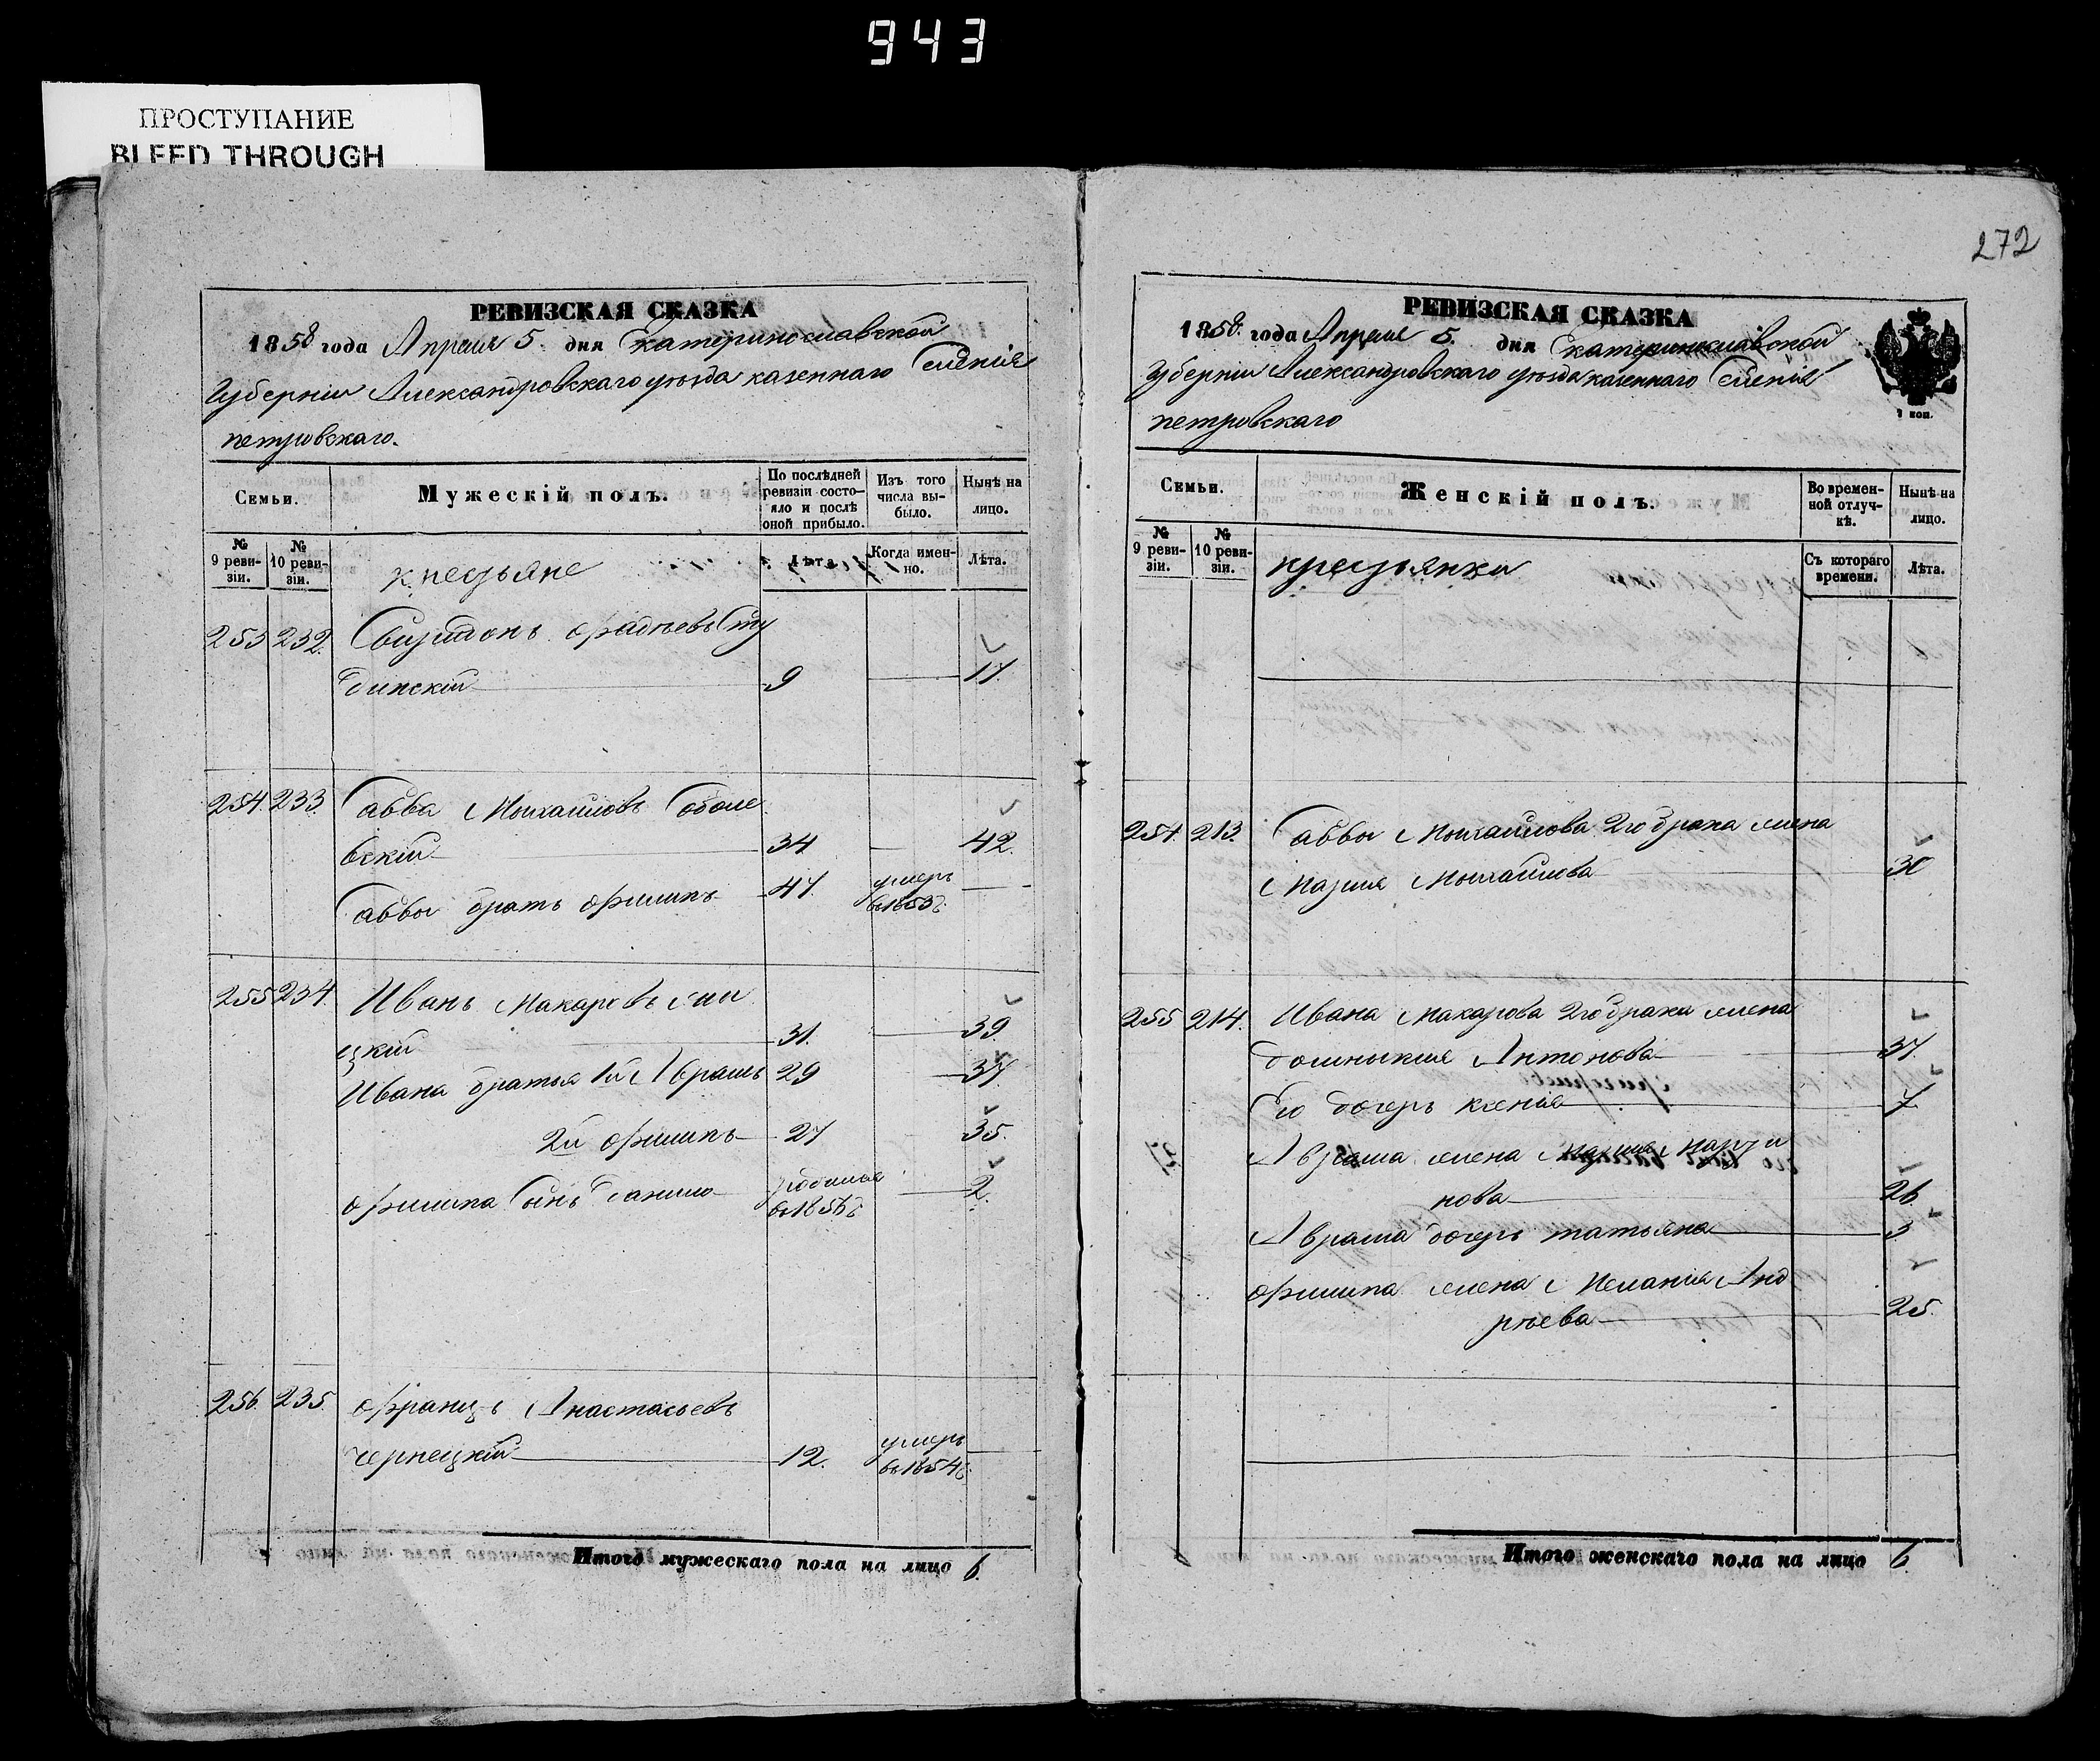 943
ПРОСТУПАНИЕ
BLEED THROUGH
272
РЕВИЗСКАЯ СКАЗКА
1858 года Апреля 5. дня Екатеринославской
Губерніи Александровскаго уѣзда казеннаго Селенія
петровскаго.
Семьи.
Мужескій полъ.
По послѣдней ревизіи состояло и послѣ оной прибыло.
Изъ того числа выбыло.
Нынѣ на лицо.
№ 9 ревизіи.
№ 10 ревизіи.
крестьяне
Лѣта.
Когда именно.
Лѣта.
253 232. фадѣевъ Сту
динскій 9 17.
254. 233. Савва Михайловъ Соболе
вскій 34 42.
Саввы братъ филипъ 47. умеръ
въ 1853 г.
255 234. Иванъ Макаровъ
цкій 31. 39.
Ивана братья 1й Аврамъ 29 37
2й филипъ 27 35.
филипа Сынъ данило родился 2.
въ 1856 г.
256. 235. францъ Анастасьевъ
чернецкій 12. умеръ
въ 1854 г.
Итого мужескаго пола на лицо 6.
РЕВИЗСКАЯ СКАЗКА
1858. года Апреля 5. дня Екатеринославской
Губерніи Александровскаго уѣзда казеннаго Селенія
петровскаго
Семьи.
Женскій полъ.
Во временной отлучкѣ.
Нынѣ на лицо.
№ 9 ревизіи.
№ 10 ревизіи.
крестьянки
Съ котораго времени.
Лѣта.
254. 213. Саввы Михайлова 2го брака жена
Марія Михайлова 30
255 214. Ивана Макарова 2го брака жена
Антонова 37.
Его дочерь ксенія 7
Аврама жена Марія Марти
нова 26.
Аврама дочерь татьяна 3
филипа жена Меланія Анд
рѣева 25.
Итого женскаго пола на лицо 6.